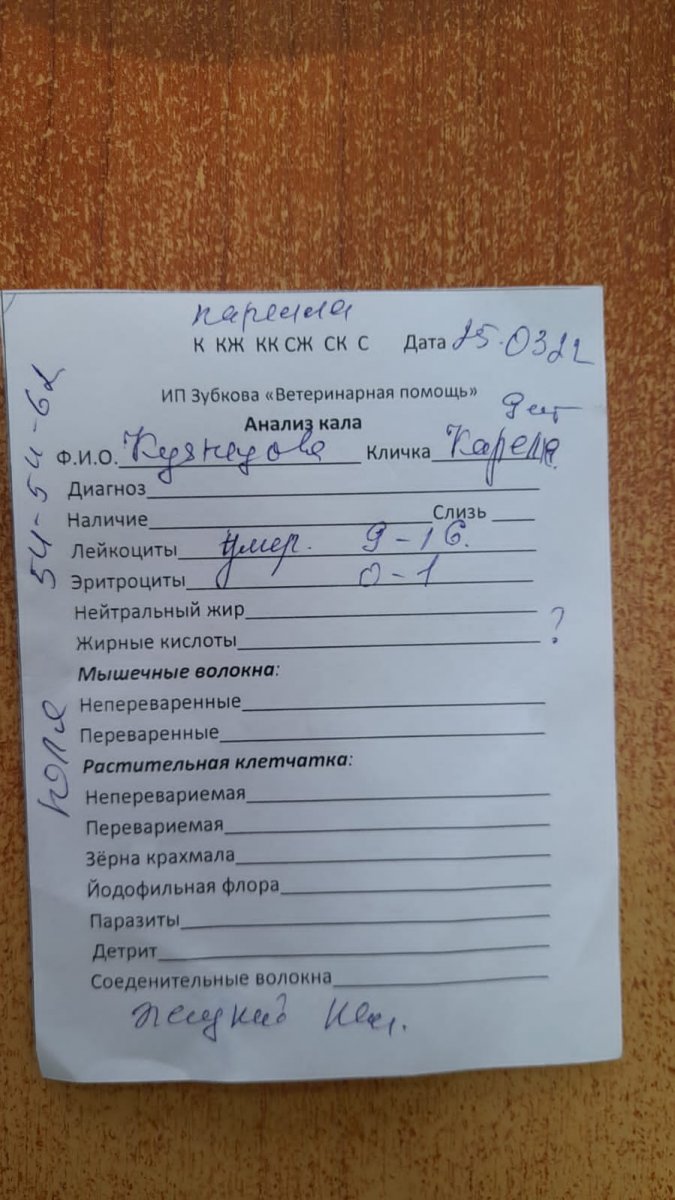 К КЖ КК СЖ СК С Дата 25.03.22
ИП Зубкова «Ветеринарная помощь»
Анализ кала
Ф.И.О. Кузнецова Кличка
Диагноз
Наличие Слизь
Лейкоциты умер. 9-16.
Эритроциты 0-1
Нейтральный жир
Жирные кислоты ?
Мышечные волокна:
Непереваренные
Переваренные
Растительная клетчатка:
Неперевариемая
Перевариемая
Зёрна крахмала
Йодофильная флора
Паразиты
Детрит
Соеденительные волокна
жидкий кал.
54-54-62